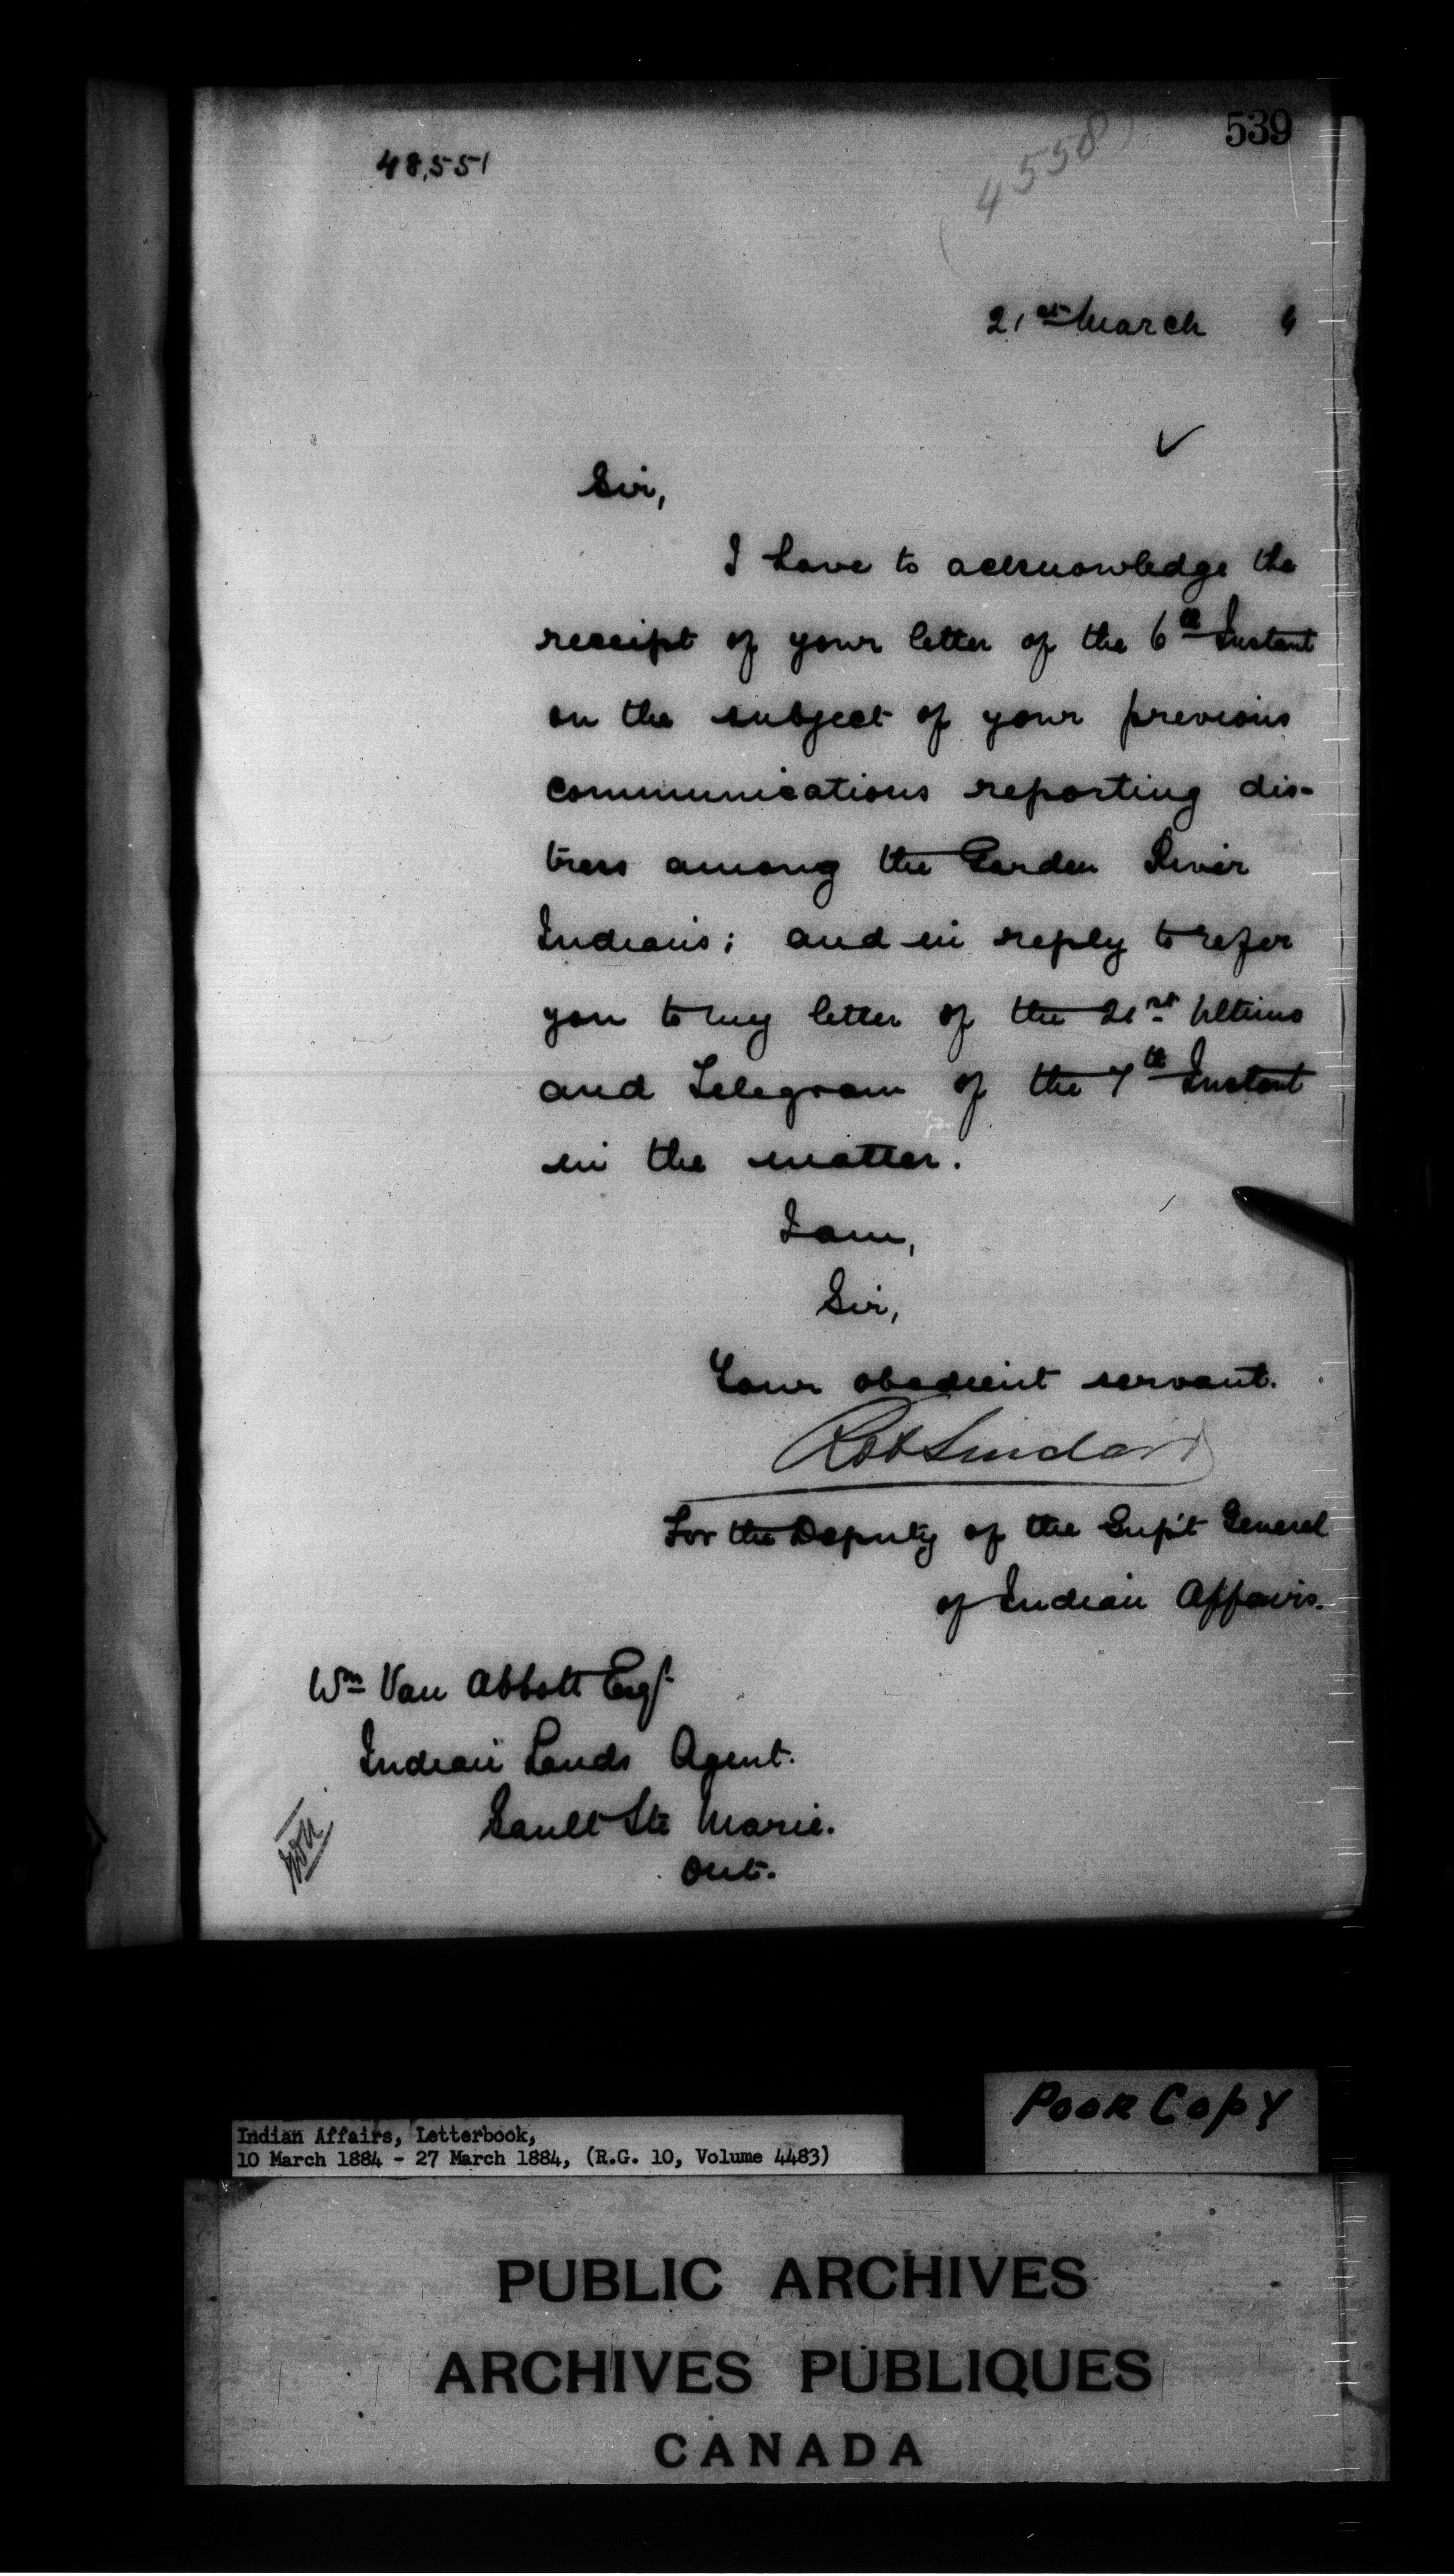 539
48,551
(4558)
21st March 4
Sir,
I have to acknowledge the
receipt of your letter of the 6th Instant
on the subject of your previous
communications reporting dis-
tress among the Garden River
Indians; and in reply to refer
you to my letter of the 21st Ultimo
and Telegram of the 7th Instant
in the matter.
I am,
Sir,
Your obedient servant.
Robt Sinclair
For the Deputy of the Sup't General
of Indian Affairs.
Wm Van Abbott Esqr
Indian Lands Agent.
Sault Ste Marie.
Ont.
Poor Copy
Indian Affairs, Letterbook,
10 March 1884 - 27 March 1884, (R.G. 10, Volume 4483)
PUBLIC ARCHIVES
ARCHIVES PUBLIQUES
CANADA